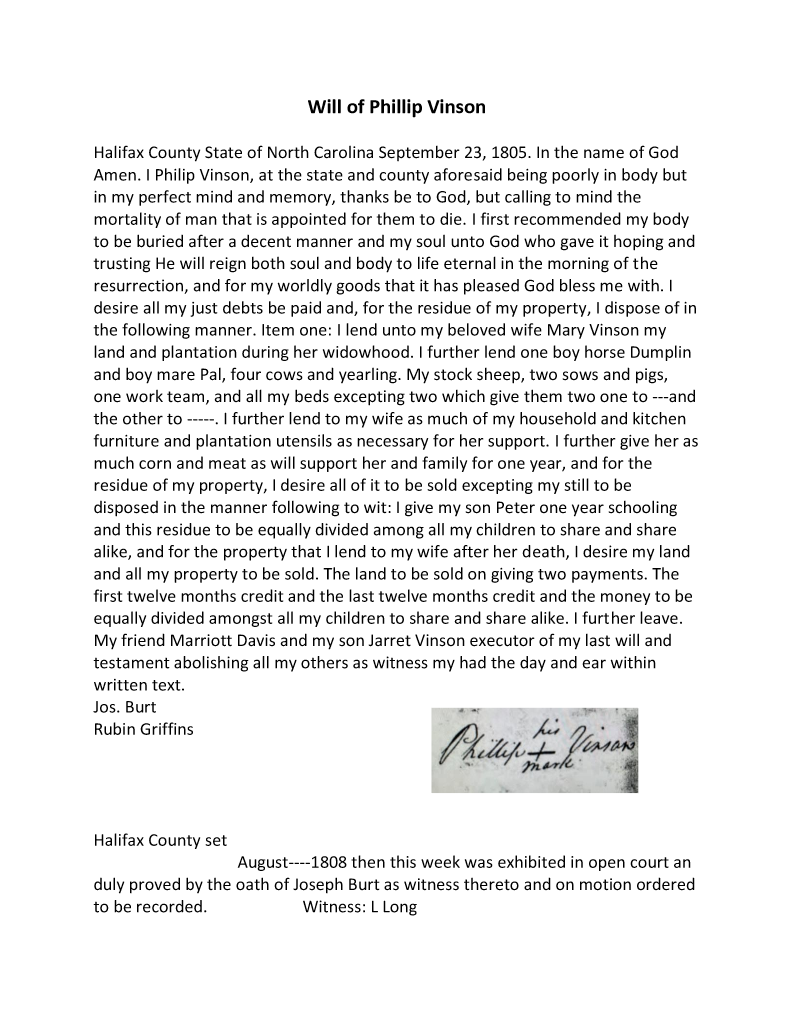 Will of Phillip Vinson
Halifax County State of North Carolina September 23, 1805. In the name of God
Amen. I Philip Vinson, at the state and county aforesaid being poorly in body but
in my perfect mind and memory, thanks be to God, but calling to mind the
mortality of man that is appointed for them to die. I first recommended my body
to be buried after a decent manner and my soul unto God who gave it hoping and
trusting He will reign both soul and body to life eternal in the morning of the
resurrection, and for my worldly goods that it has pleased God bless me with. I
desire all my just debts be paid and, for the residue of my property, I dispose of in
the following manner. Item one: I lend unto my beloved wife Mary Vinson my
land and plantation during her widowhood. I further lend one boy horse Dumplin
and boy mare Pal, four cows and yearling. My stock sheep, two sows and pigs,
one work team, and all my beds excepting two which give them two one to ---and
the other to -----. I further lend to my wife as much of my household and kitchen
furniture and plantation utensils as necessary for her support. I further give her as
much corn and meat as will support her and family for one year, and for the
residue of my property, I desire all of it to be sold excepting my still to be
disposed in the manner following to wit: I give my son Peter one year schooling
and this residue to be equally divided among all my children to share and share
alike, and for the property that I lend to my wife after her death, I desire my land
and all my property to be sold. The land to be sold on giving two payments. The
first twelve months credit and the last twelve months credit and the money to be
equally divided amongst all my children to share and share alike. I further leave.
My friend Marriott Davis and my son Jarret Vinson executor of my last will and
testament abolishing all my others as witness my had the day and ear within
written text.
Jos. Burt
Rubin Griffins
his
Phillip + Vinson
mark
Halifax County set
August----1808 then this week was exhibited in open court an
duly proved by the oath of Joseph Burt as witness thereto and on motion ordered
to be recorded. Witness: L Long